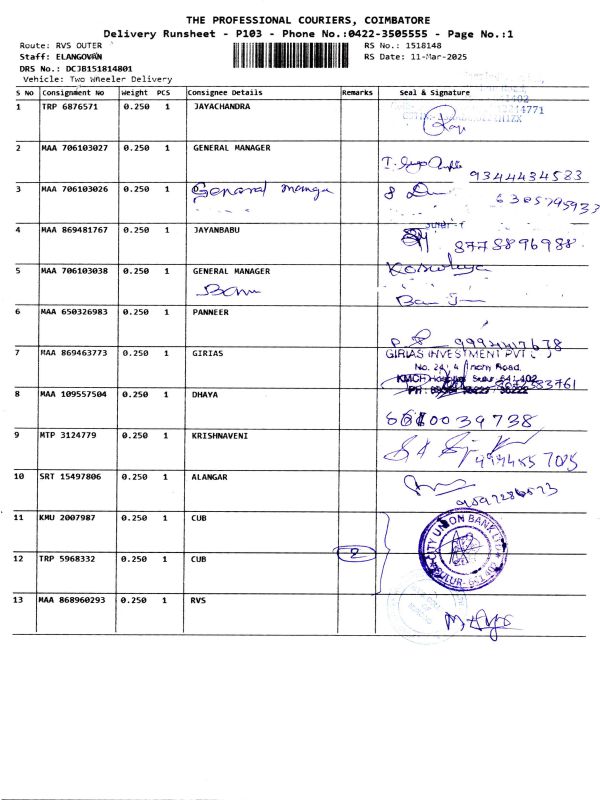 THE PROFESSIONAL COURIERS, COIMBATORE
Delivery Runsheet - P103 - Phone No.:0422-3505555 - Page No.:1
Route: RVS OUTER
RS No.: 1518148
Staff: ELANGOVAN
RS Date: 11-Mar-2025
DRS No.: DCJB151814801
Vehicle: Two Wheeler Delivery
S No Consignment No Weight PCS Consignee Details Remarks Seal & Signature
1 TRP 6876571 0.250 1 JAYACHANDRA
2 MAA 706103027 0.250 1 GENERAL MANAGER
9344434583
3 MAA 706103026 0.250 1 General manager
6385745933
4 MAA 869481767 0.250 1 JAYANBABU
8778896988
5 MAA 706103038 0.250 1 GENERAL MANAGER
Banu
6 MAA 650326983 0.250 1 PANNEER
7 MAA 869463773 0.250 1 GIRIAS GIRIAS INVESTMENT PVT
KMCH Hospital Sulur 641 402
8 MAA 109557504 0.250 1 DHAYA
9 MTP 3124779 0.250 1 KRISHNAVENI
10 SRT 15497806 0.250 1 ALANGAR
11 KMU 2007987 0.250 1 CUB
CITY UNION BANK LTD
SULUR
12 TRP 5968332 0.250 1 CUB 2
13 MAA 868960293 0.250 1 RVS